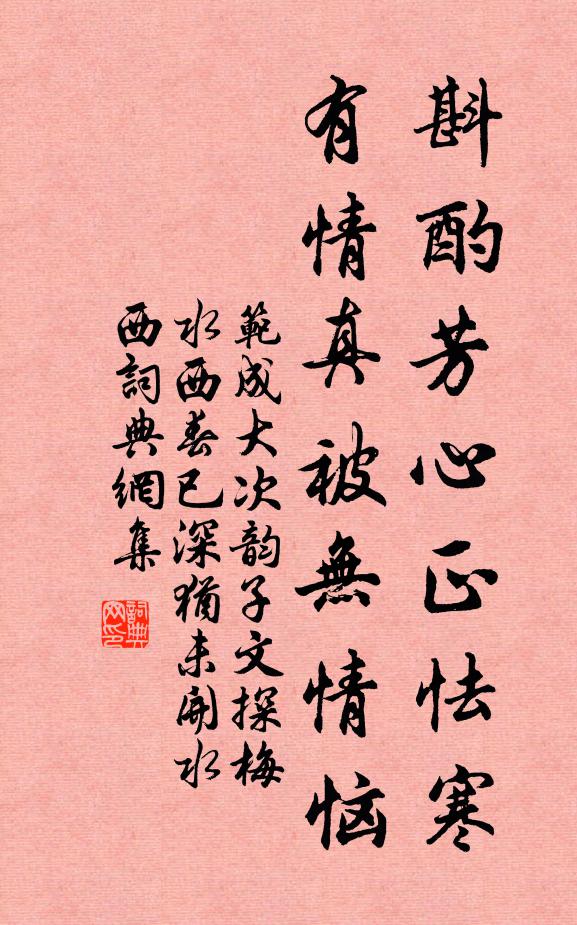 斟酌芳心正怯寒
有情真被無情恼
範成大次韵子文探梅
水西春已深猶未開水
西詞典網集
詞典网印